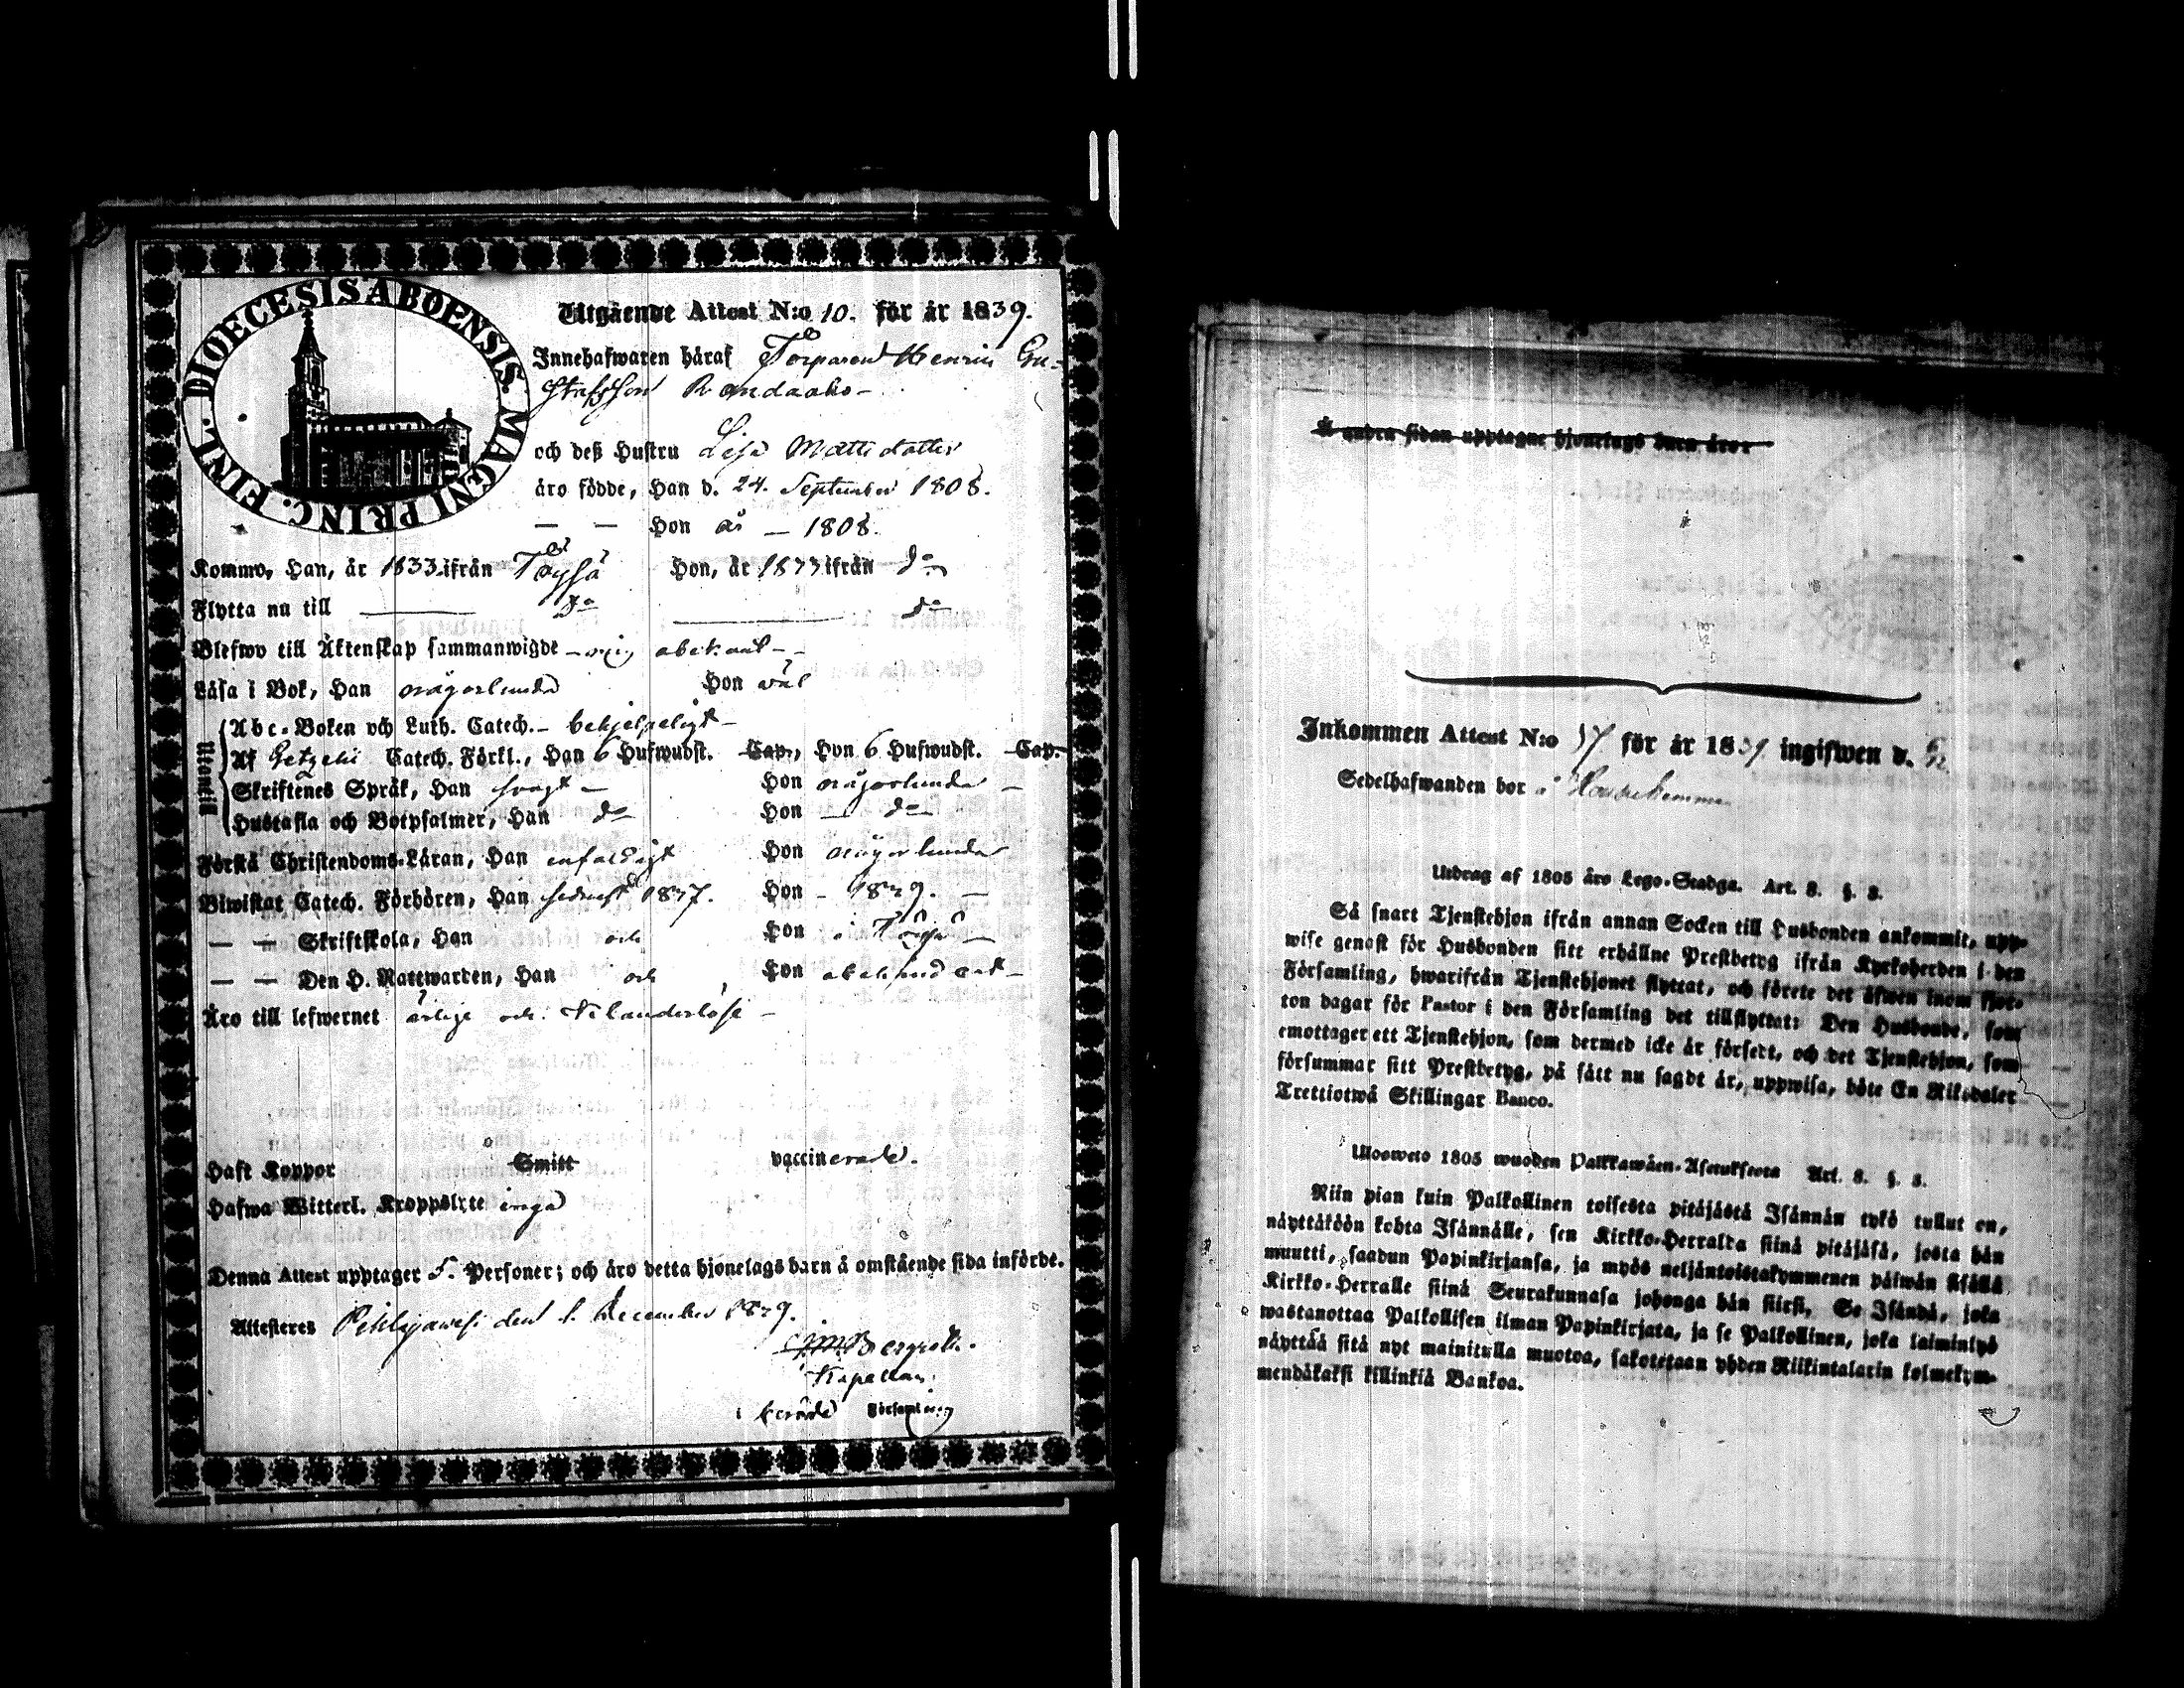 DIOECESIS ABOENSIS. MAGNI PRINC. FINL.
Utgående Attest N:o 10. för år 1839.
Innehafwaren häraf Torparen Henric Gu-
stafsson Randaaho -
och deß Hustru Lisa Mattsdotter
äro födde, Han d. 24. September 1808.
— — Hon år — 1808.
Kommo, Han, år 1833 ifrån Töysä Hon, år 1833 ifrån do
Flytta nu till do do
Blefwo till Äktenskap sammanwigde - mig obekant -
Läsa i Bok, Han någorlunda Hon wäl
Utontill
Abc-Boken och Luth. Catech. - behjelpeligt -
Af Getzelii Catech. Förkl., Han 6 Hufwudst. Cap., Hon 6 Hufwudst. Cap.
Skriftenes Språk, Han svagt - Hon någorlunda -
Hustafla och Botpsalmer, Han do Hon — do —
Förstå Christendoms-Läran, Han enfaldigt Hon någorlunda
Biwistat Catech. Förhören, Han sednast 1837. Hon - 1839. -
— — Skriftskola, Han och Hon i Töysä -
— — Den H. Nattwarden, Han och Hon
Äro till lefwernet ärlige och -
Haft Koppor Smitt vaccinerade.
Hafwa Witterl. Kroppslyte inga
Denna Attest upptager 5. Personer; och äro detta hjonelags barn å omstående sida införde.
Attesteres Pihlajawesi den 1. December 1839.
Bergroth.
Kapellan
i berörde Församling
Å andra sidan upptagne hjonelags barn äro:
Inkommen Attest N:o 37 för år 1839 ingifwen d.
Sedelhafwanden bor å
Utdrag af 1805 års Lego-Stadga. Art. 8. §. 3.
Så snart Tjenstehjon ifrån annan Socken till Husbonden ankommit, upp-
wise genast för Husbonden sitt erhållne Prestbetyg ifrån Kyrkoherden i den
Församling, hwarifrån Tjenstehjonet flyttat, och förete det äfwen inom fjor-
ton dagar för Pastor i den Församling det tillflyttat: Den Husbonde, som
emottager ett Tjenstehjon, som dermed icke är försedt, och det Tjenstehjon, som
försummar sitt Prestbetyg, på sätt nu sagdt är, uppwisa, böte En Riksdaler
Trettiotwå Skillingar Banco.
Ulosweto 1805 wuoden Palkkawäen-Asetuksesta Art. 8. §. 3.
Niin pian kuin Palkollinen toisesta pitäjästä Isännän tykö tullut on,
näyttäköön kohta Isännälle, sen Kirkko-Herralta siinä pitäjäsä, josta hän
muutti, saadun Papinkirjansa, ja myös neljäntoistakymmenen päiwän sisällä
Kirkko-Herralle siinä Seurakunnasa johonga hän siirsi, Se Isändä, joka
wastanottaa Palkollisen ilman Papinkirjata, ja se Palkollinen, joka laiminlyö
näyttää sitä nyt mainitulla muotoa, sakotetaan yhden Riikintalarin kolmekym-
mendäkaksi killinkiä Bankoa.